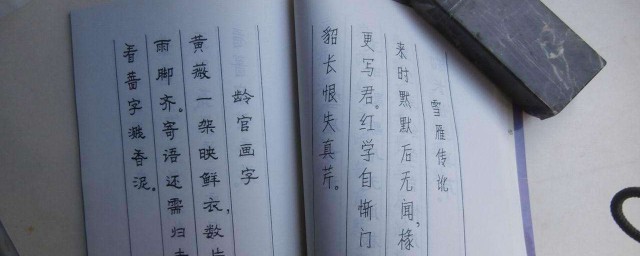 雪雁传讹
来时默默后无闻，椽
更写君。红学自惭门
貂长恨失真芹。
龄官画字
黄薇一架映鲜衣，数片
雨脚齐。寄语还需归
看蔷字溅香泥。